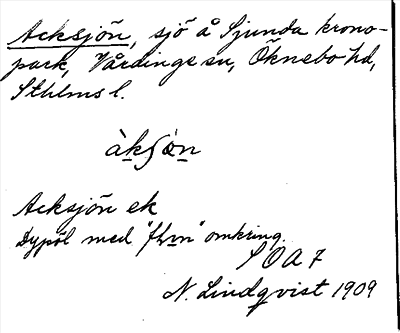 Acksjön, sjö å Sjunda krono-
park, Vårdinge sn, Öknebo hd,
Sthlms l.
àkʃö̀n
Acksjön ek
Dypöl med "flyn" omkring.
SOA 7
N. Lindqvist 1909